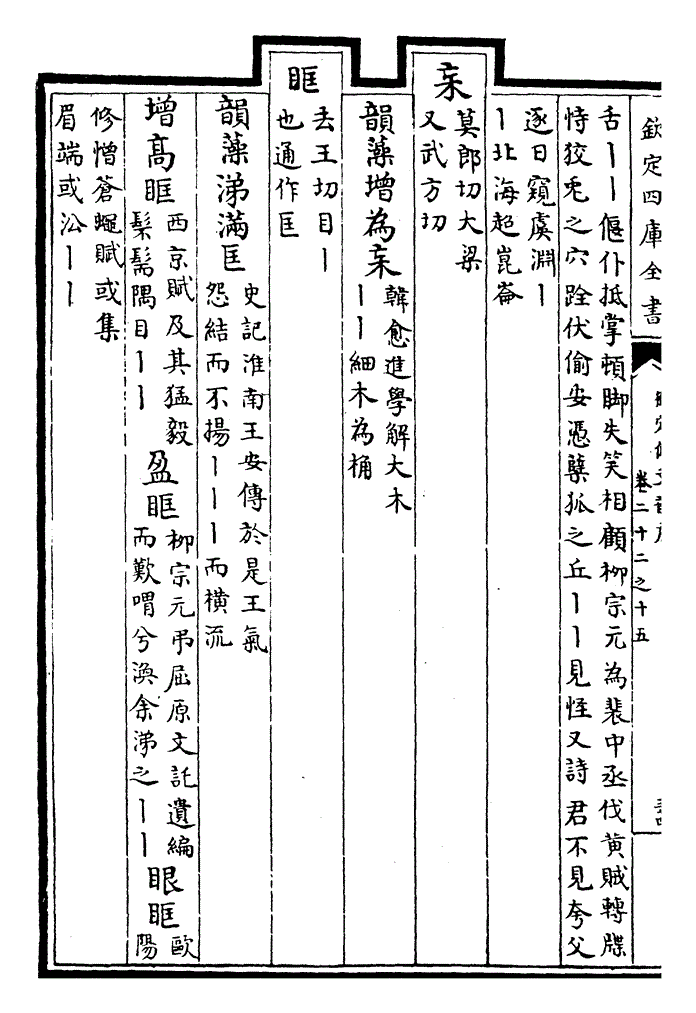 欽定四庫全書
卷二十二之十五
舌丨丨偃仆抵掌頓脚失笑相顧柳宗元為裴中丞伐黄賊轉牒
恃狡兎之穴跧伏偷安憑孽狐之丘丨丨見怪又詩君不見夸父
逐日窺虞淵丨
丨北海超崑崙
杗
莫郎切大梁
又武方切
韻藻增為杗
韓愈進學解大木
丨丨細木為桷
眶
去王切目丨
也通作匡
韻藻涕滿匡
史記淮南王安傳於是王氣
怨結而不揚丨丨丨而横流
增高眶
西京賦及其猛毅
髬髵隅目丨丨
盈眶
柳宗元弔屈原文託遺編
而歎喟兮渙余涕之丨丨
眼眶
歐
陽
修憎蒼蠅賦或集
眉端或㳂丨丨